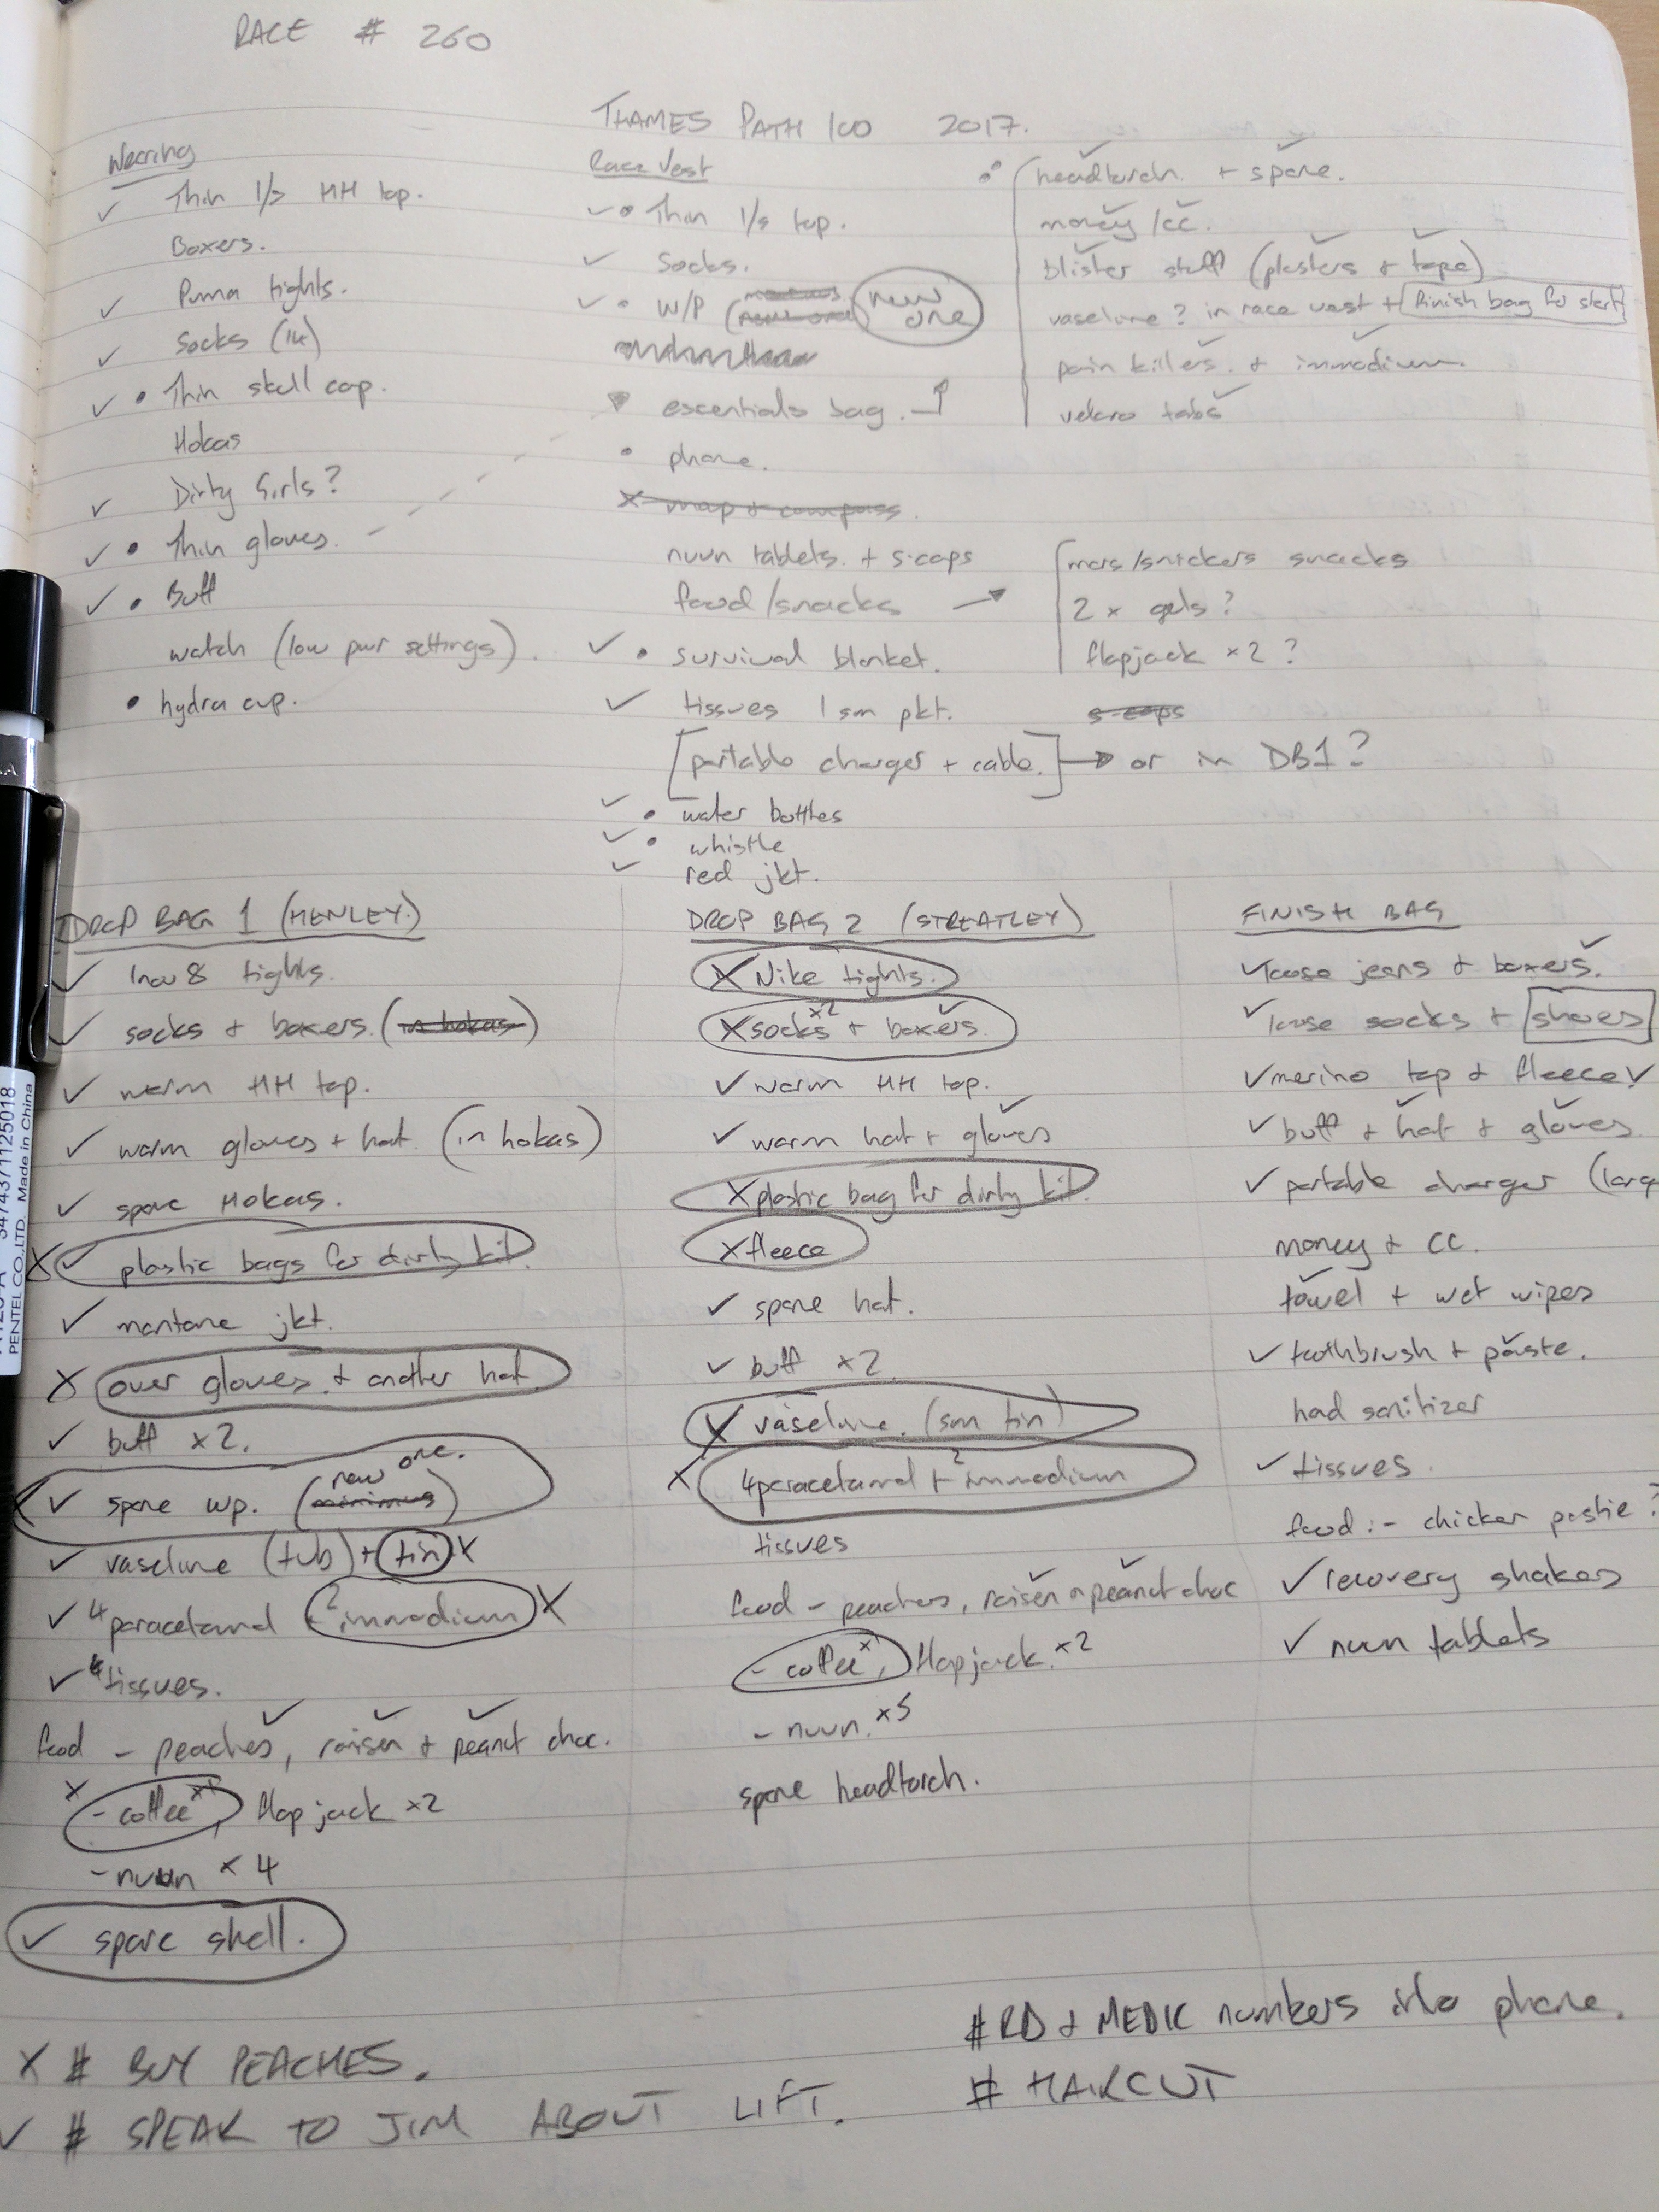 RACE # 260
THAMES PATH 100 2017.
Wearing
✓ Thin l/s HH top.
Boxers.
✓ Puma tights.
✓ Socks (in)
✓ • Thin skull cap.
Hokas
✓ Dirty Girls?
✓ • Thin gloves.
✓ • Buff
watch (low pwr settings).
• hydra cup.
Race Vest
✓ • Thin l/s top.
✓ Socks.
✓ • W/P (new one)
essentials bag.
• phone.
X map & compass.
nuun tablets. + s-caps
food/snacks →
✓ • survival blanket.
✓ tissues 1 sm pkt.
[portable charger + cable.] → or in DB1?
✓ • water bottles
✓ • whistle
✓ red jkt.
• headtorch. + spare.
money/cc.
blister stuff (plasters & tape)
vaseline? in race vest + finish bag for start
pain killers. & immodium.
velcro tabs
mars/snickers snacks
2 x gels?
flapjack x2?
s-caps
DROP BAG 1 (HENLEY.)
✓ Inov8 tights.
✓ socks & boxers. (in hokas)
✓ warm HH top.
✓ warm gloves + hat. (in hokas)
✓ spare Hokas.
X ✓ plastic bags for dirty kit.
✓ montane jkt.
X over gloves. & another hat
✓ buff x2.
new one.
✓ spare wp. (minimus)
✓ vaseline (tub) + tin X
✓ 4 paracetamol + 2 immodium X
✓ tissues.
food - peaches, raisen & peanut choc.
X - coffee x1, flapjack x2
- nuun x 4
✓ spare shell.
DROP BAG 2 (STREATLEY)
X Nike tights.
X socks x2 + boxers.
✓ warm HH top.
✓ warm hat + gloves
X plastic bag for dirty kit.
X fleece
✓ spare hat.
✓ buff x2.
X vaseline. (sm tin)
X 4 paracetamol + 2 immodium
tissues
food - peaches, raisen & peanut choc
- coffee x1, flapjack. x2
- nuun. x5
spare headtorch.
FINISH BAG
✓ loose jeans & boxers.
✓ loose socks + shoes
✓ merino top & fleece ✓
✓ buff & hat & gloves
✓ portable charger (larg
money & cc.
towel + wet wipes
✓ toothbrush + paste.
had sanitizer
✓ tissues.
food :- chicken pastie?
✓ recovery shakes
✓ nuun tablets
X # BUY PEACHES.
✓ # SPEAK TO JIM ABOUT LIFT.
# RD & MEDIC numbers into phone.
# HAIRCUT
3474371125018
PENTEL CO.,LTD. Made in China